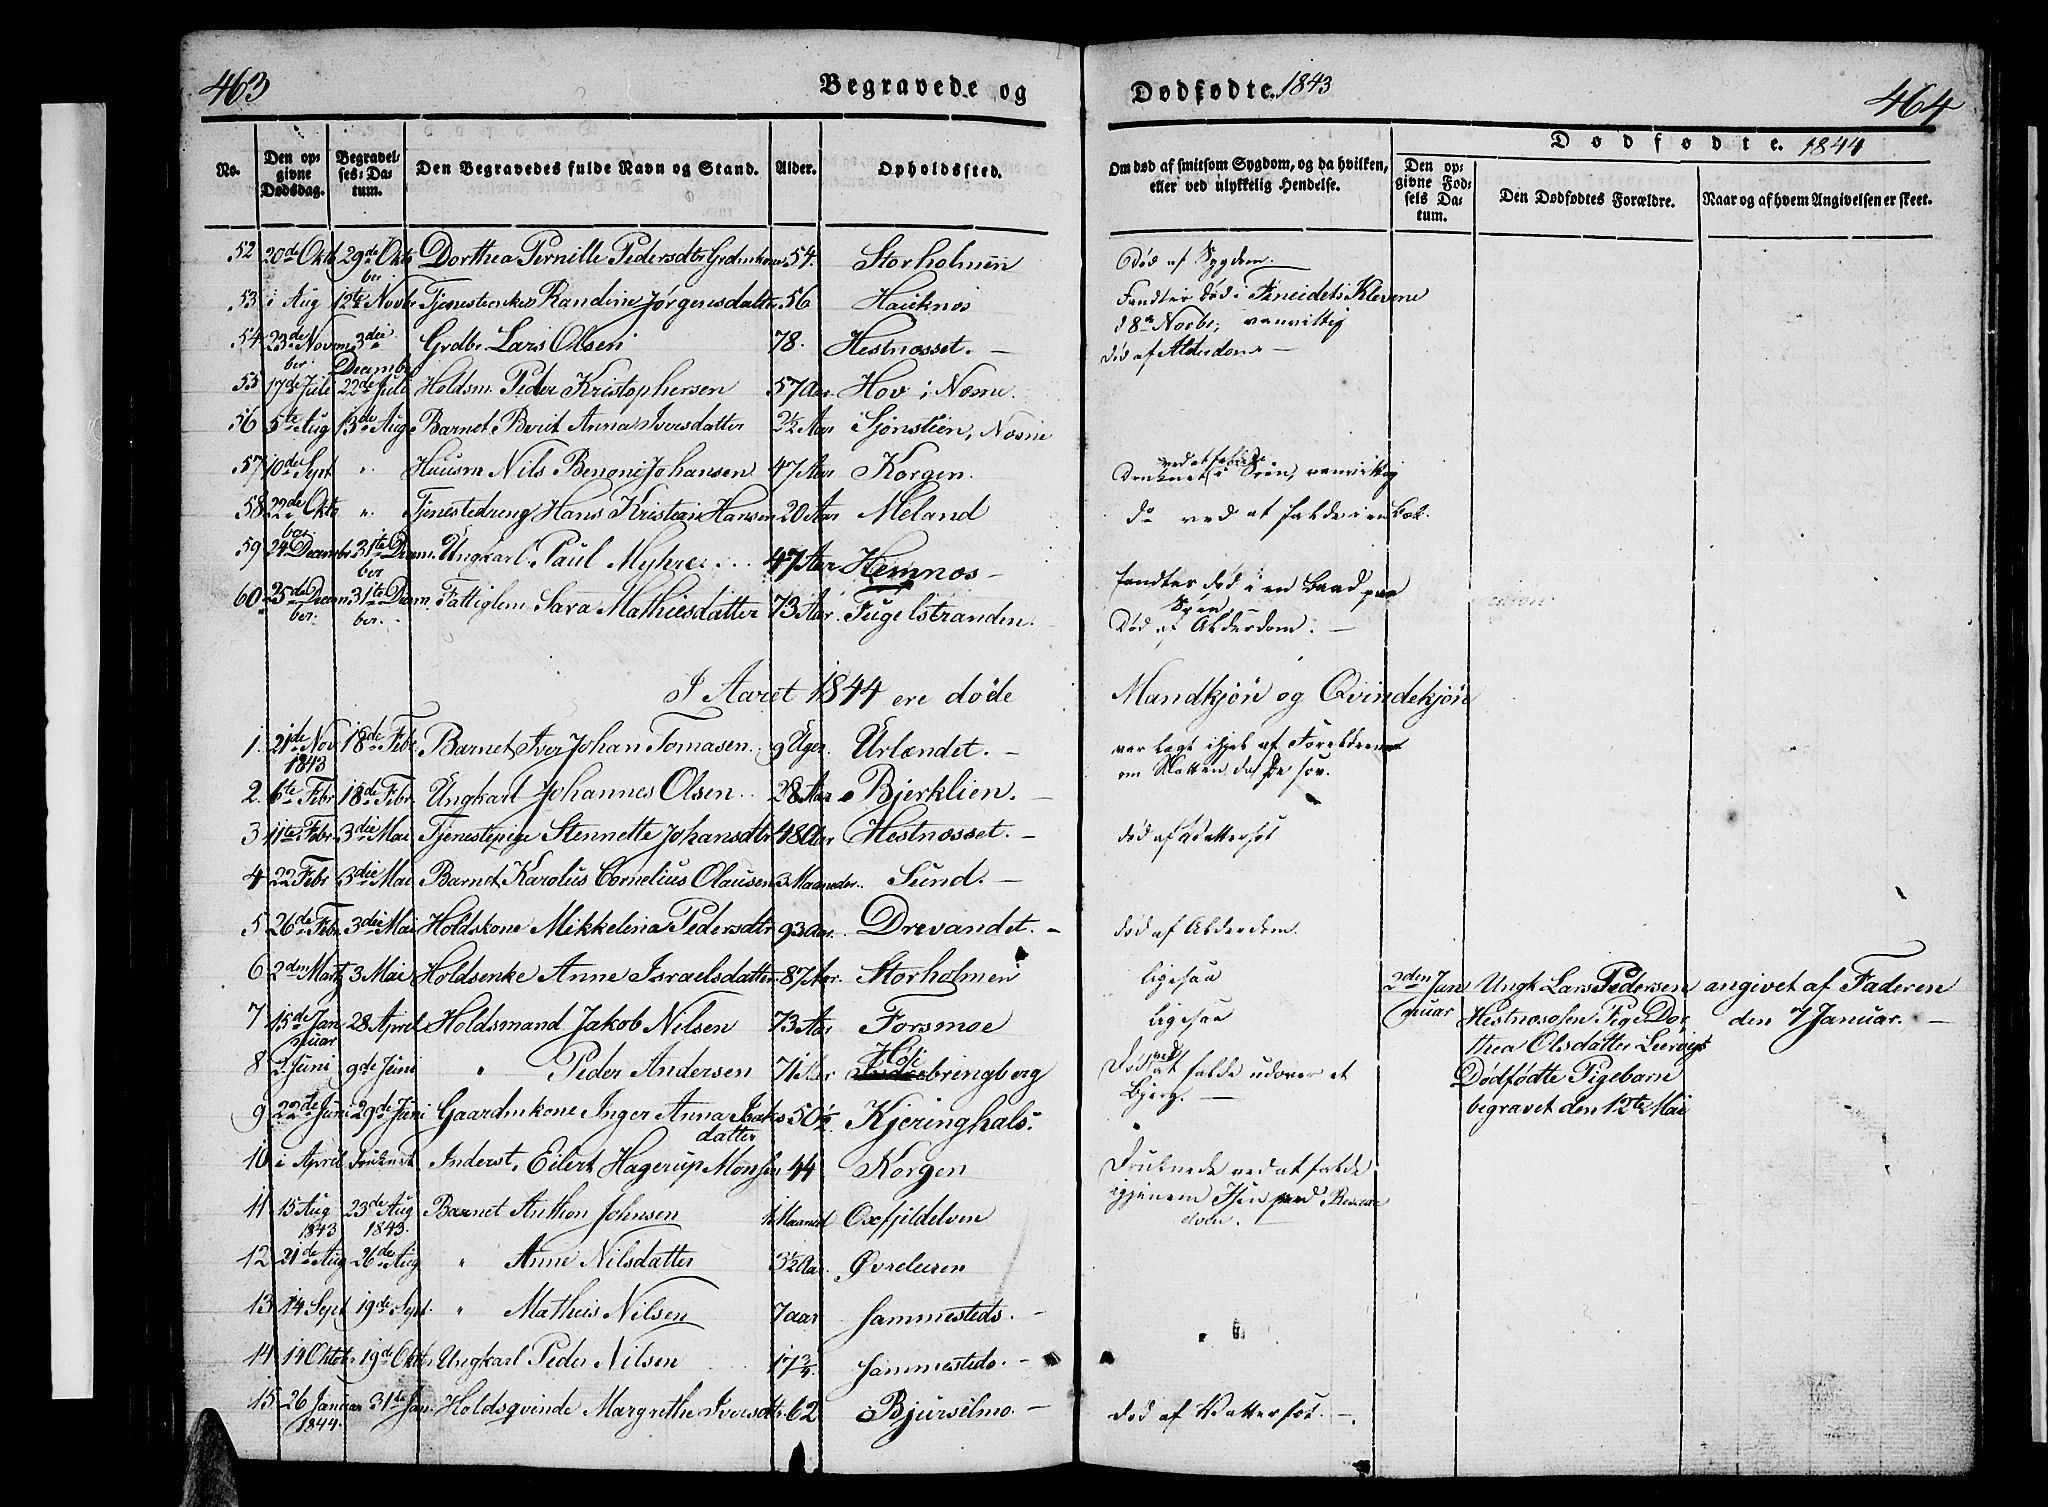 463
Begravede og
Dødfødte. 1843
464
No.
Den opgivne Dødsdag.
Begravelses-Datum.
Den Begravedes fulde Navn og Stand.
Alder.
Opholdssted.
Om død af smitsom Sygdom, og da hvilken, eller ved ulykkelig Hendelse.
Dødfødte. 1844
Den opgivne Fødsels Datum.
Den Dødfødtes Forældre.
Naar og af hvem Angivelsen er skeet.
52 20de Okt 29de Oktober Dorthea Pernille Pedersdtr 54. Storholmen Død af Sygdom.
53 i Aug 12te Novbr Tjenestienke Randine Jørgensdatter 56 Hauknæs Fandtes død i Fineidets Klevene
d 8de Novbr, vanvittig
54 23de November 3die December Grdbr Lars Olsen 78. Hestnæsset. – død af Alderdom –
55 17de Juli 22de Juli Holdsm. Peder Kristophersen 57 Aar Hov i Næsne.
56 5te Aug 13de Aug Barnet Berit Anna Iversdatter 2½ Aar Sjønstien, Næsne
57 10de Sept " Huusm Nils Benoni Johansen 47 Aar Korgen. Druknet ved at falde i Søen, vanvittig
58 22de Oktober " Tjenestedreng Hans Kristian Hansen 20 Aar Meland do ved at falde i en Bæk.
59 24 Decembr 31te December Ungkarl Paul Myhre ... 47 Aar Hemnæs – fandtes død i en Baad paa
Søen.
60 25de December 31te December. Fattiglem Sara Mathiesdatter 73 Aar. Fugelstranden. Død af Alderdom. –
I Aaret 1844 ere døde Mandkjøn og Qvindekjøn
1. 21de Nov 1843 18de Febr Barnet Iver Johan Tomasen 9 Uger. Urlændet. – var lagt ihjel af Forældrene
om Natten da de sov.
2. 6te Febr 18de Febr Ungkarl Johannes Olsen 28 Aar Bjerklien. –
3 11te Febr 3die Mai Tjenestepige Stennette Johansdtr 48 Aar Hestnæsset. – død af Vattersot
4 22 Febr 3die Mai Barnet Karolus Cornelius Olausen 3 Maaneder. Sund. –
5 26de Febr 3die Mai Holdskone Mikkelina Pedersdtr 93 Aar. Drevandet. – død af Alderdom.
6 2den Martz 3 Mai Holdsenke Anne Israelsdatter 87 Aar. Storholmen ligesaa
7 15de Januar 28 April Holdsmand Jakob Nilsen 73 Aar Forsmoe ligesaa
8 2 Juni 9de Juni " Peder Andersen 71 Aar bringberg Død ved at falde udover et
Bjerg. –
9 22de Juni 29de Juni Gaardmkone Inger Anna Isaksdatter 50½. Kjeringhals.
10 i April Druknet Inderst, Eilert Hagerup Monsen 44 Korgen Druknede ved at falde
igjennem Isen
elven. –
11 15 Aug 1843 23de Aug 1843. Barnet Anthon Johnsen Maaned Oxfjeldelven
12 21de Aug 26de Aug " Anne Nilsdatter 3½ Aar. Øvreleeren
13 14 Sept 19de Sept. " Matheis Nilsen 7 aar sammesteds. –
14 14 Oktbr. 19de Oktbr Ungkarl Peder Nilsen 17¾ sammesteds. –
15 26 Januar 1844. 31te Jan. Holdsqvinde Margrethe Iversdtr 62 Bjursilmo. – død af Vattersot. –
2den Januar
Ungk Lars Pedersen
Hestnæsosen Pige Dorthea Olsdatter Leervig
Dødfødte Pigebarn
begravet den 12te Mai
angivet af Faderen
den 7 Januar. –